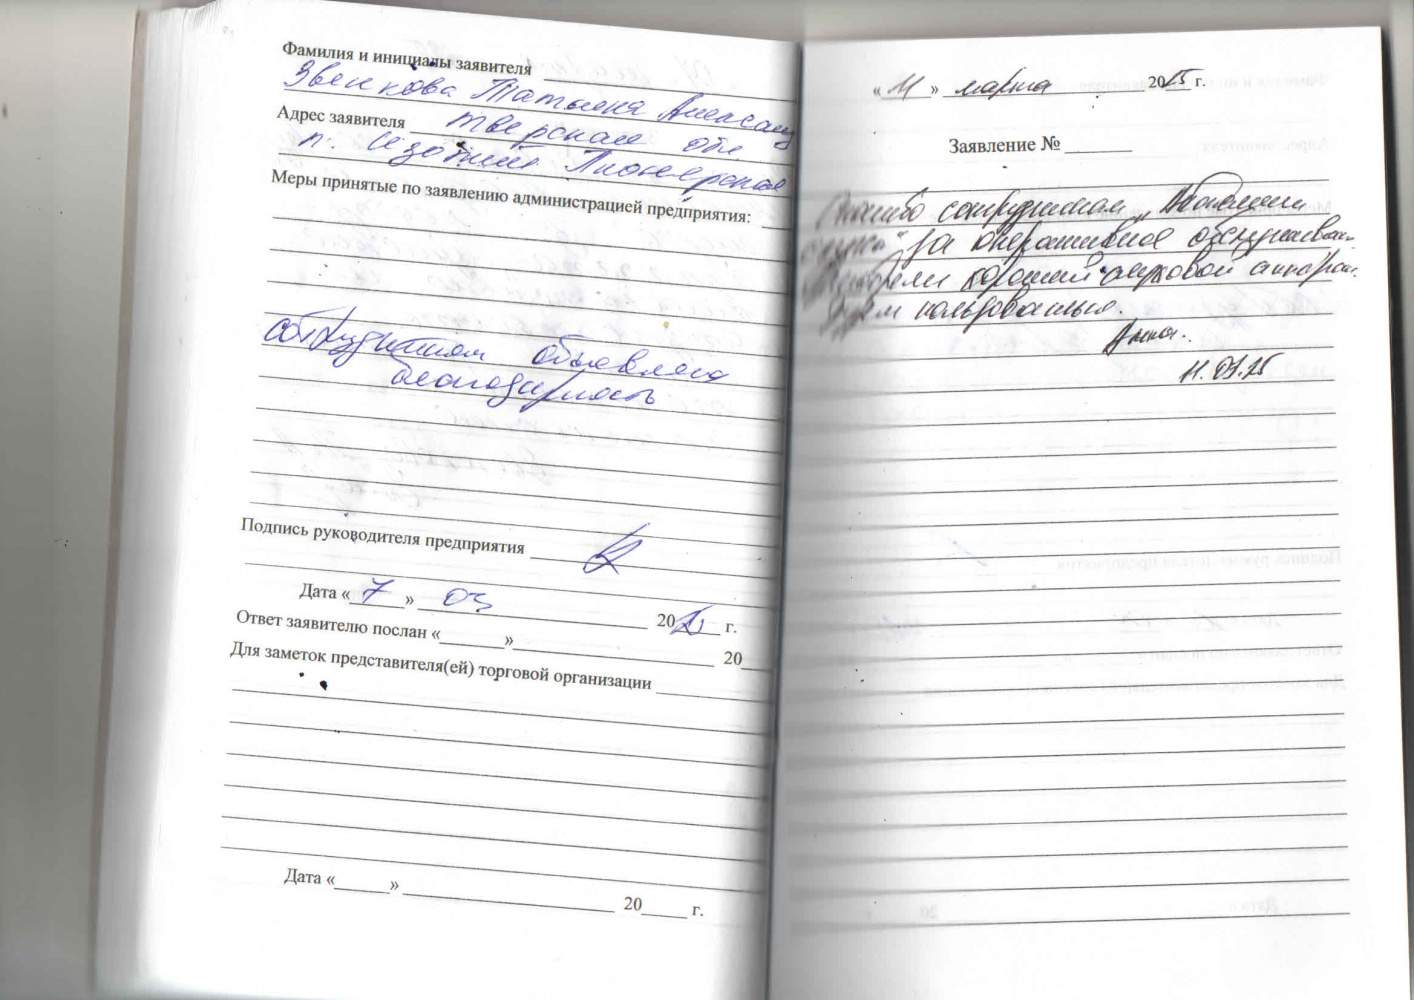 Фамилия и инициалы заявителя
Звенкова Татьяна Алексан
Адрес заявителя Тверская обл
п. Изоплит Пионерская
Меры принятые по заявлению администрацией предприятия:
сотрудникам объявлена
благодарность
Подпись руководителя предприятия
Дата « 7 » 03 20 г.
Ответ заявителю послан « » 20
Для заметок представителя(ей) торговой организации
Дата « » 20 г.
« 11 » марта 2015 г.
Заявление №
Спасибо сотрудникам
за оперативное обслуживан.
хороший слуховой аппарат.
пользованью.
11.03.15